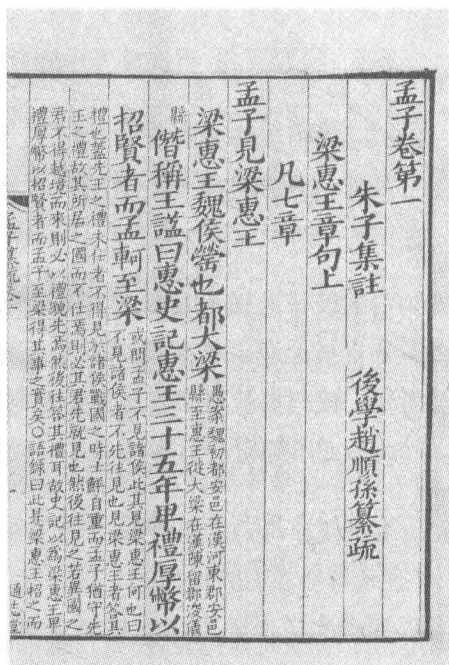 孟子卷第一
朱子集註　後學趙順孫纂疏
梁惠王章句上
凡七章
孟子見梁惠王
梁惠王魏侯罃也都大梁
愚案魏初都安邑在漢河東郡安邑
縣至惠王徙大梁在漢陳留郡浚儀
縣
僭稱王諡曰惠史記惠王三十五年卑禮厚幣以
招賢者而孟軻至梁
或問孟子不見諸侯此其見梁惠王何也曰
不見諸侯者不先往見也見梁惠王者答其
禮也蓋先王之禮未仕者不得見於諸侯戰國之時士鮮自重而孟子猶守先
王之禮故其所居之國而不仕焉則必其君先就見也然後往見之若異國之
君不得越境而來則必以禮貌先焉然後往答其禮耳故史記以爲梁惠王卑
禮厚幣以招賢者而孟子至梁得其事之實矣○語錄曰此是梁惠王招之而
通志堂